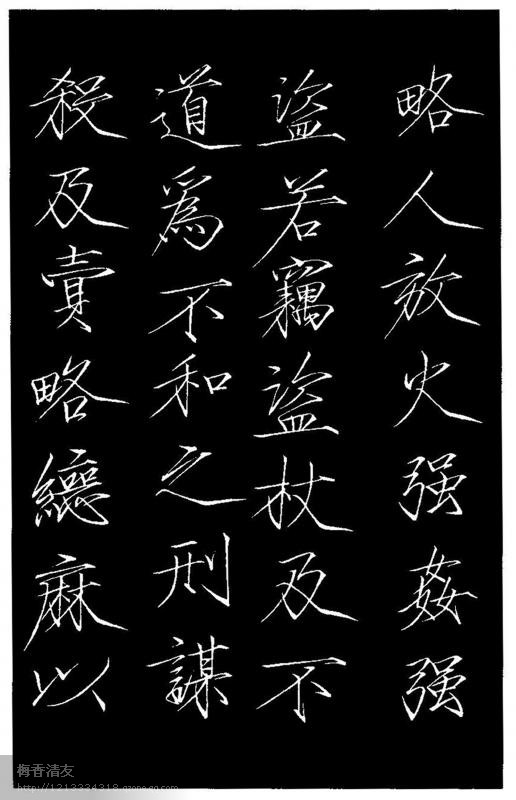 略人放火强姦强
盜若竊盜杖及不
道爲不和之刑謀
殺及賣略緦麻以
梅香清友
http://1213334318.qzone.qq.com